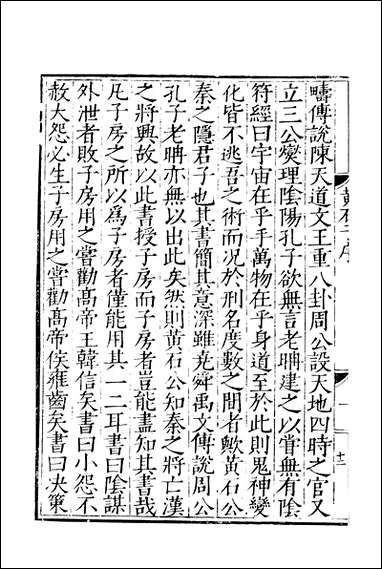 疇傳說陳天道文王重八卦周公設天地四時之官又
立三公燮理陰陽孔子欲無言老聃建之以甞無有陰
符經曰宇宙在乎手萬物在乎身道至於此則鬼神變
化皆不逃吾之術而况於刑名度數之間者歟黃石公
秦之隱君子也其書簡其意深雖堯舜禹文傳說周公
孔子老聃亦無以出此矣然則黃石公知秦之將亡漢
之將興故以此書授子房而子房者豈能盡知其書哉
凡子房之所以爲子房者僅能用其一二耳書曰陰謀
外泄者敗子房用之嘗勸髙帝王韓信矣書曰小怨不
赦大怨必生子房用之嘗勸髙帝侯雍齒矣書曰决策
黃石子序
一
十二